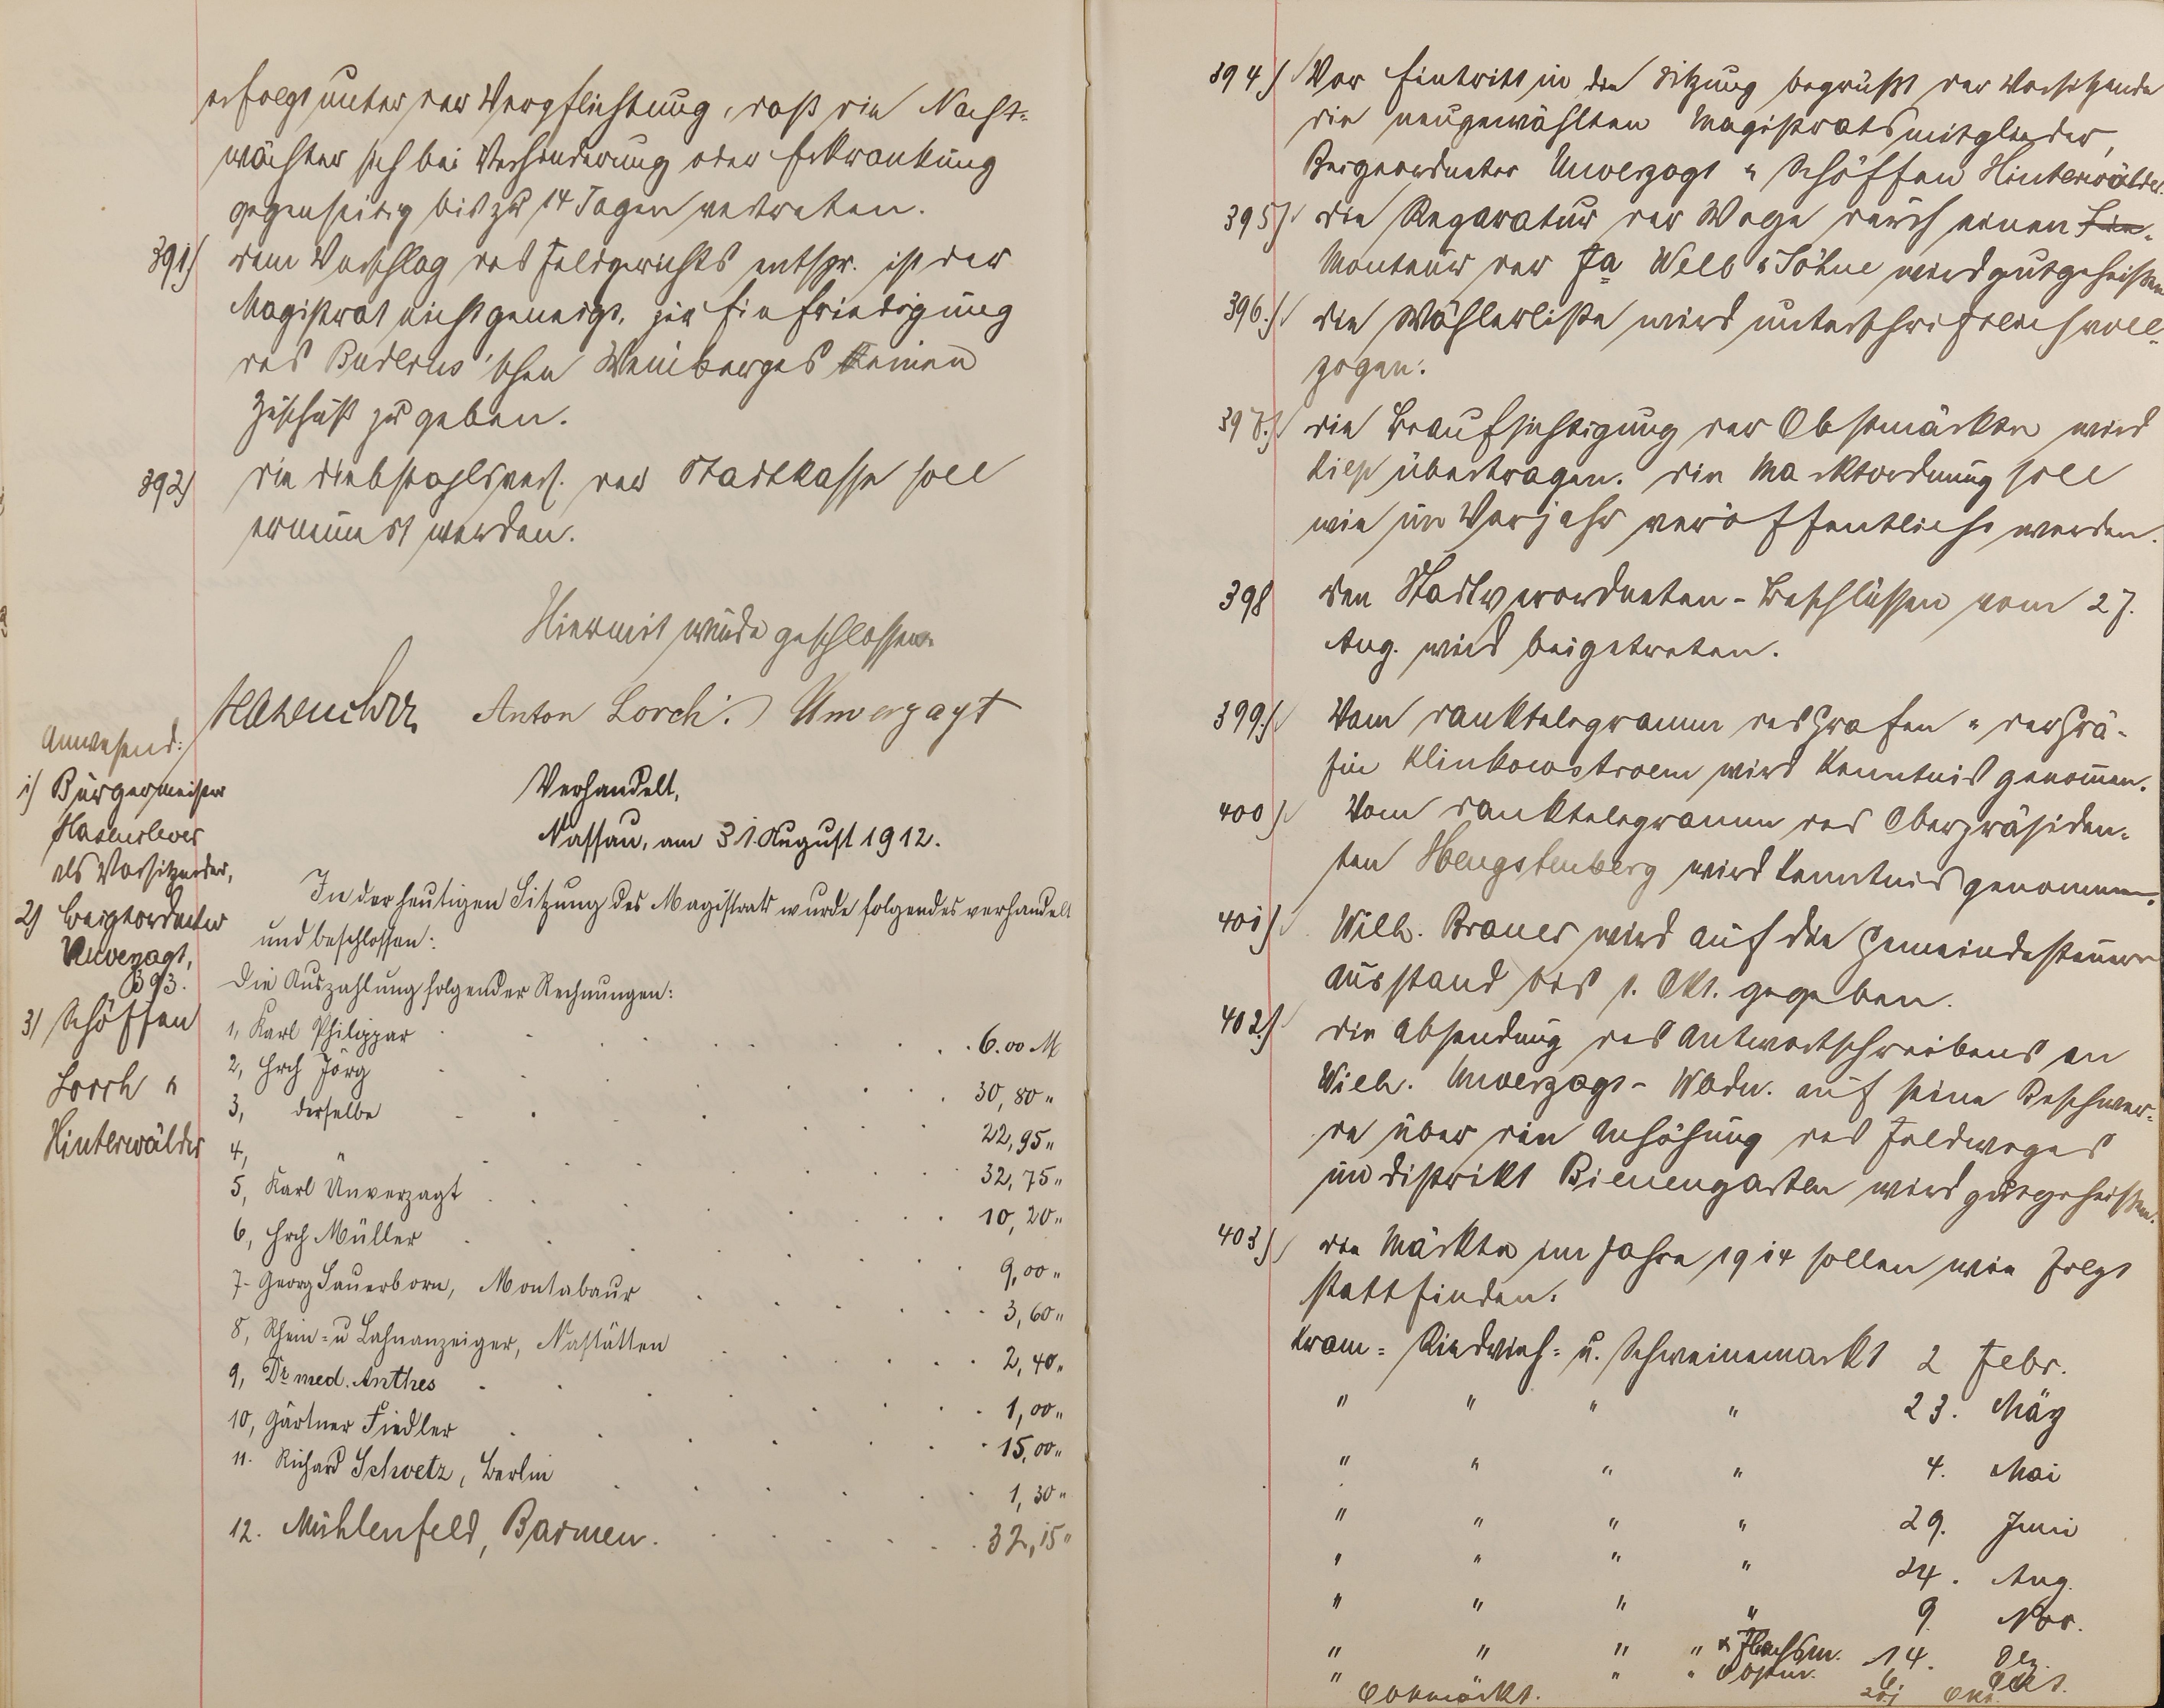 erfolgt unter der Verpflichtung, daß die Nacht-
wächter sich bei Verhinderung oder Erkrankung
gegenseitig bis zu 14 Tagen vertreten.
391) dem Vorschlag des Feldgerichts entspr. ist der
Magistrat nicht geneigt, zur Einfriedigung
des Buderus'schen Weinberges einen
Zuschuß zu geben.
392) die Diebstahlsvers. der Stadtkasse soll
erneuert werden.
Hiermit wurde geschlossen
Hasenclever Anton Lorch. Unverzagt
Anwesend:
1) Bürgermeister
Hasenclever
als Vorsitzender,
2) Beigeordneter
Unverzagt,
3) Schöffen
Lorch u
Hinterwälder
Verhandelt,
Nassau, am 31. August 1912.
In der heutigen Sitzung des Magistrats wurde folgendes verhandelt
und beschlossen:
393. Die Auszahlung folgender Rechnungen:
1, Karl Philippar 6.00 M
2, Hrch Jörg 30,80 "
3, derselbe 22,95 "
4, " 32,75 "
5, Karl Unverzagt 10,20 "
6, Hrch Müller 9,00 "
7- Georg Sauerborn, Montabaur 3,60 "
8, Rhein- u Lahnanzeiger, Nastätten 2,40 "
9, Dr med. Anthes 1,00 "
10, Gärtner Fiedler 15,00 "
11. Richard Schwetz, Berlin 1,30 "
12. Mühlenfeld, Barmen. 32,15 "
394) Vor Eintritt in die Sitzung begrüßt der Vorsitzende
die neugewählten Magistratsmitglieder,
Beigeordneter Unverzagt u Schöffen Hinterwälder.
395) die Reparatur der Wage durch einen
Monteur der Fa Weeb & Söhne wird gutgeheißen
396.) die Wählerliste wird unterschriftlich voll-
zogen.
397.) die Beaufsichtigung der Obstmärkte wird
übertragen. die Marktordnung soll
wie im Vorjahr veröffentlicht werden.
398 den Stadtverordneten-Beschlüssen vom 27.
Aug. wird beigetreten.
399.) Vom Danktelegramm des Grafen u der Grä-
fin Klinkowstroem wird Kenntnis genommen.
400) Vom Danktelegramm des Oberpräsiden-
ten Hengstenberg wird Kenntnis genommen.
401) Wilh. Brauer wird auf die Gemeindesteuern
Ausstand bis 1. Okt. gegeben.
402.) die Absendung des Antwortschreibens an
Wilh. Unverzagt- Wwe. auf seine Beschwer-
de über die Anhöhung des Feldweges
im Distrikt Bienengarten wird gutgeheißen.
403) die Märkte im Jahre 1914 sollen wie folgt
stattfinden.
Kram- Rindvieh- u. Schweinemarkt 2 Febr.
" " " " 23. März
" " " " 4. Mai
" " " " 29. Juni
" " " " 24. Aug.
" " " " 9. Nov.
" " " " & Flachsm. 14. Dez.
" " " Obstm. 6. Okt.
Obstmärkt.